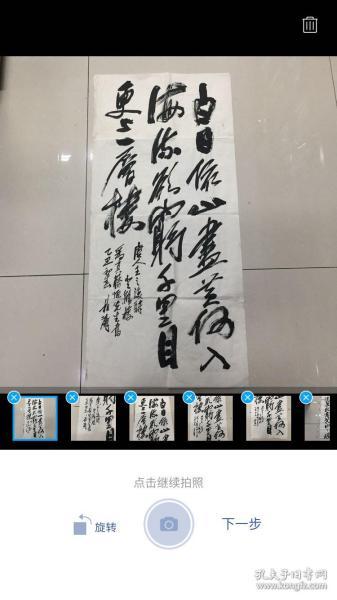 白日依山盡黃河入
海流欲窮千里目
更上一層樓
唐人王之渙詩
登鸛樓
点击继续拍照
旋转
下一步
孔夫子旧书网
www.kongfz.com